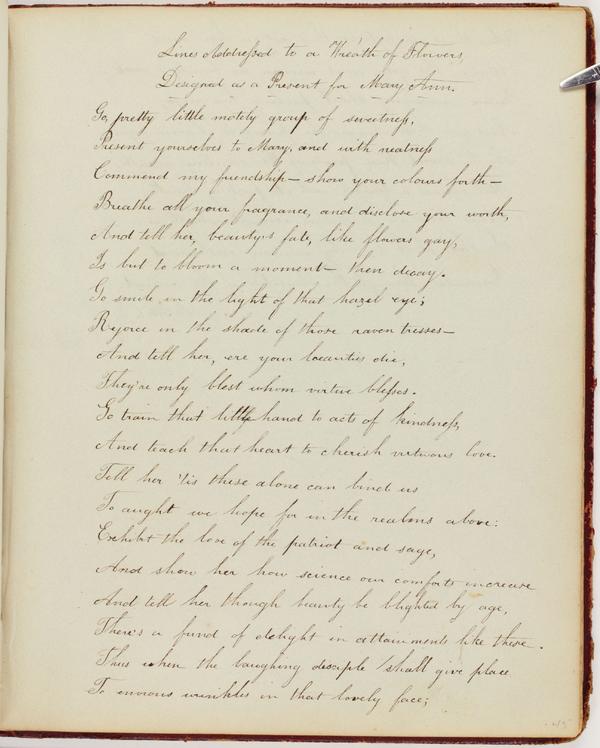 Lines Addressed to a Wreath of Flowers,
Designed as a Present for Mary Ann.
Go, pretty little motely group of sweetness,
Present yourselves to Mary, and with neatness
Commend my friendship— show your colours forth—
Breathe all your fragrance, and disclose your worth,
And tell her, beauty's fate, like flowers gay,
Is but to bloom a moment— then decay.
Go smile in the light of that hazel eye;
Rejoice in the shade of those raven tresses—
And tell her, ere your beauties die,
They're only blest whom virtue blesses.
Go train that little hand to acts of kindness,
And teach that heart to cherish virtuous love.
Tell her 'tis these alone can bind us
To aught we hope for in the realms above:
Exhibit the love of the patriot and sage,
And show her how science our comforts increase
And tell her though beauty be blighted by age,
There's a fund of delight in attainments like these.
Thus when the laughing shall give place
To envious wrinkles in that lovely face;
45